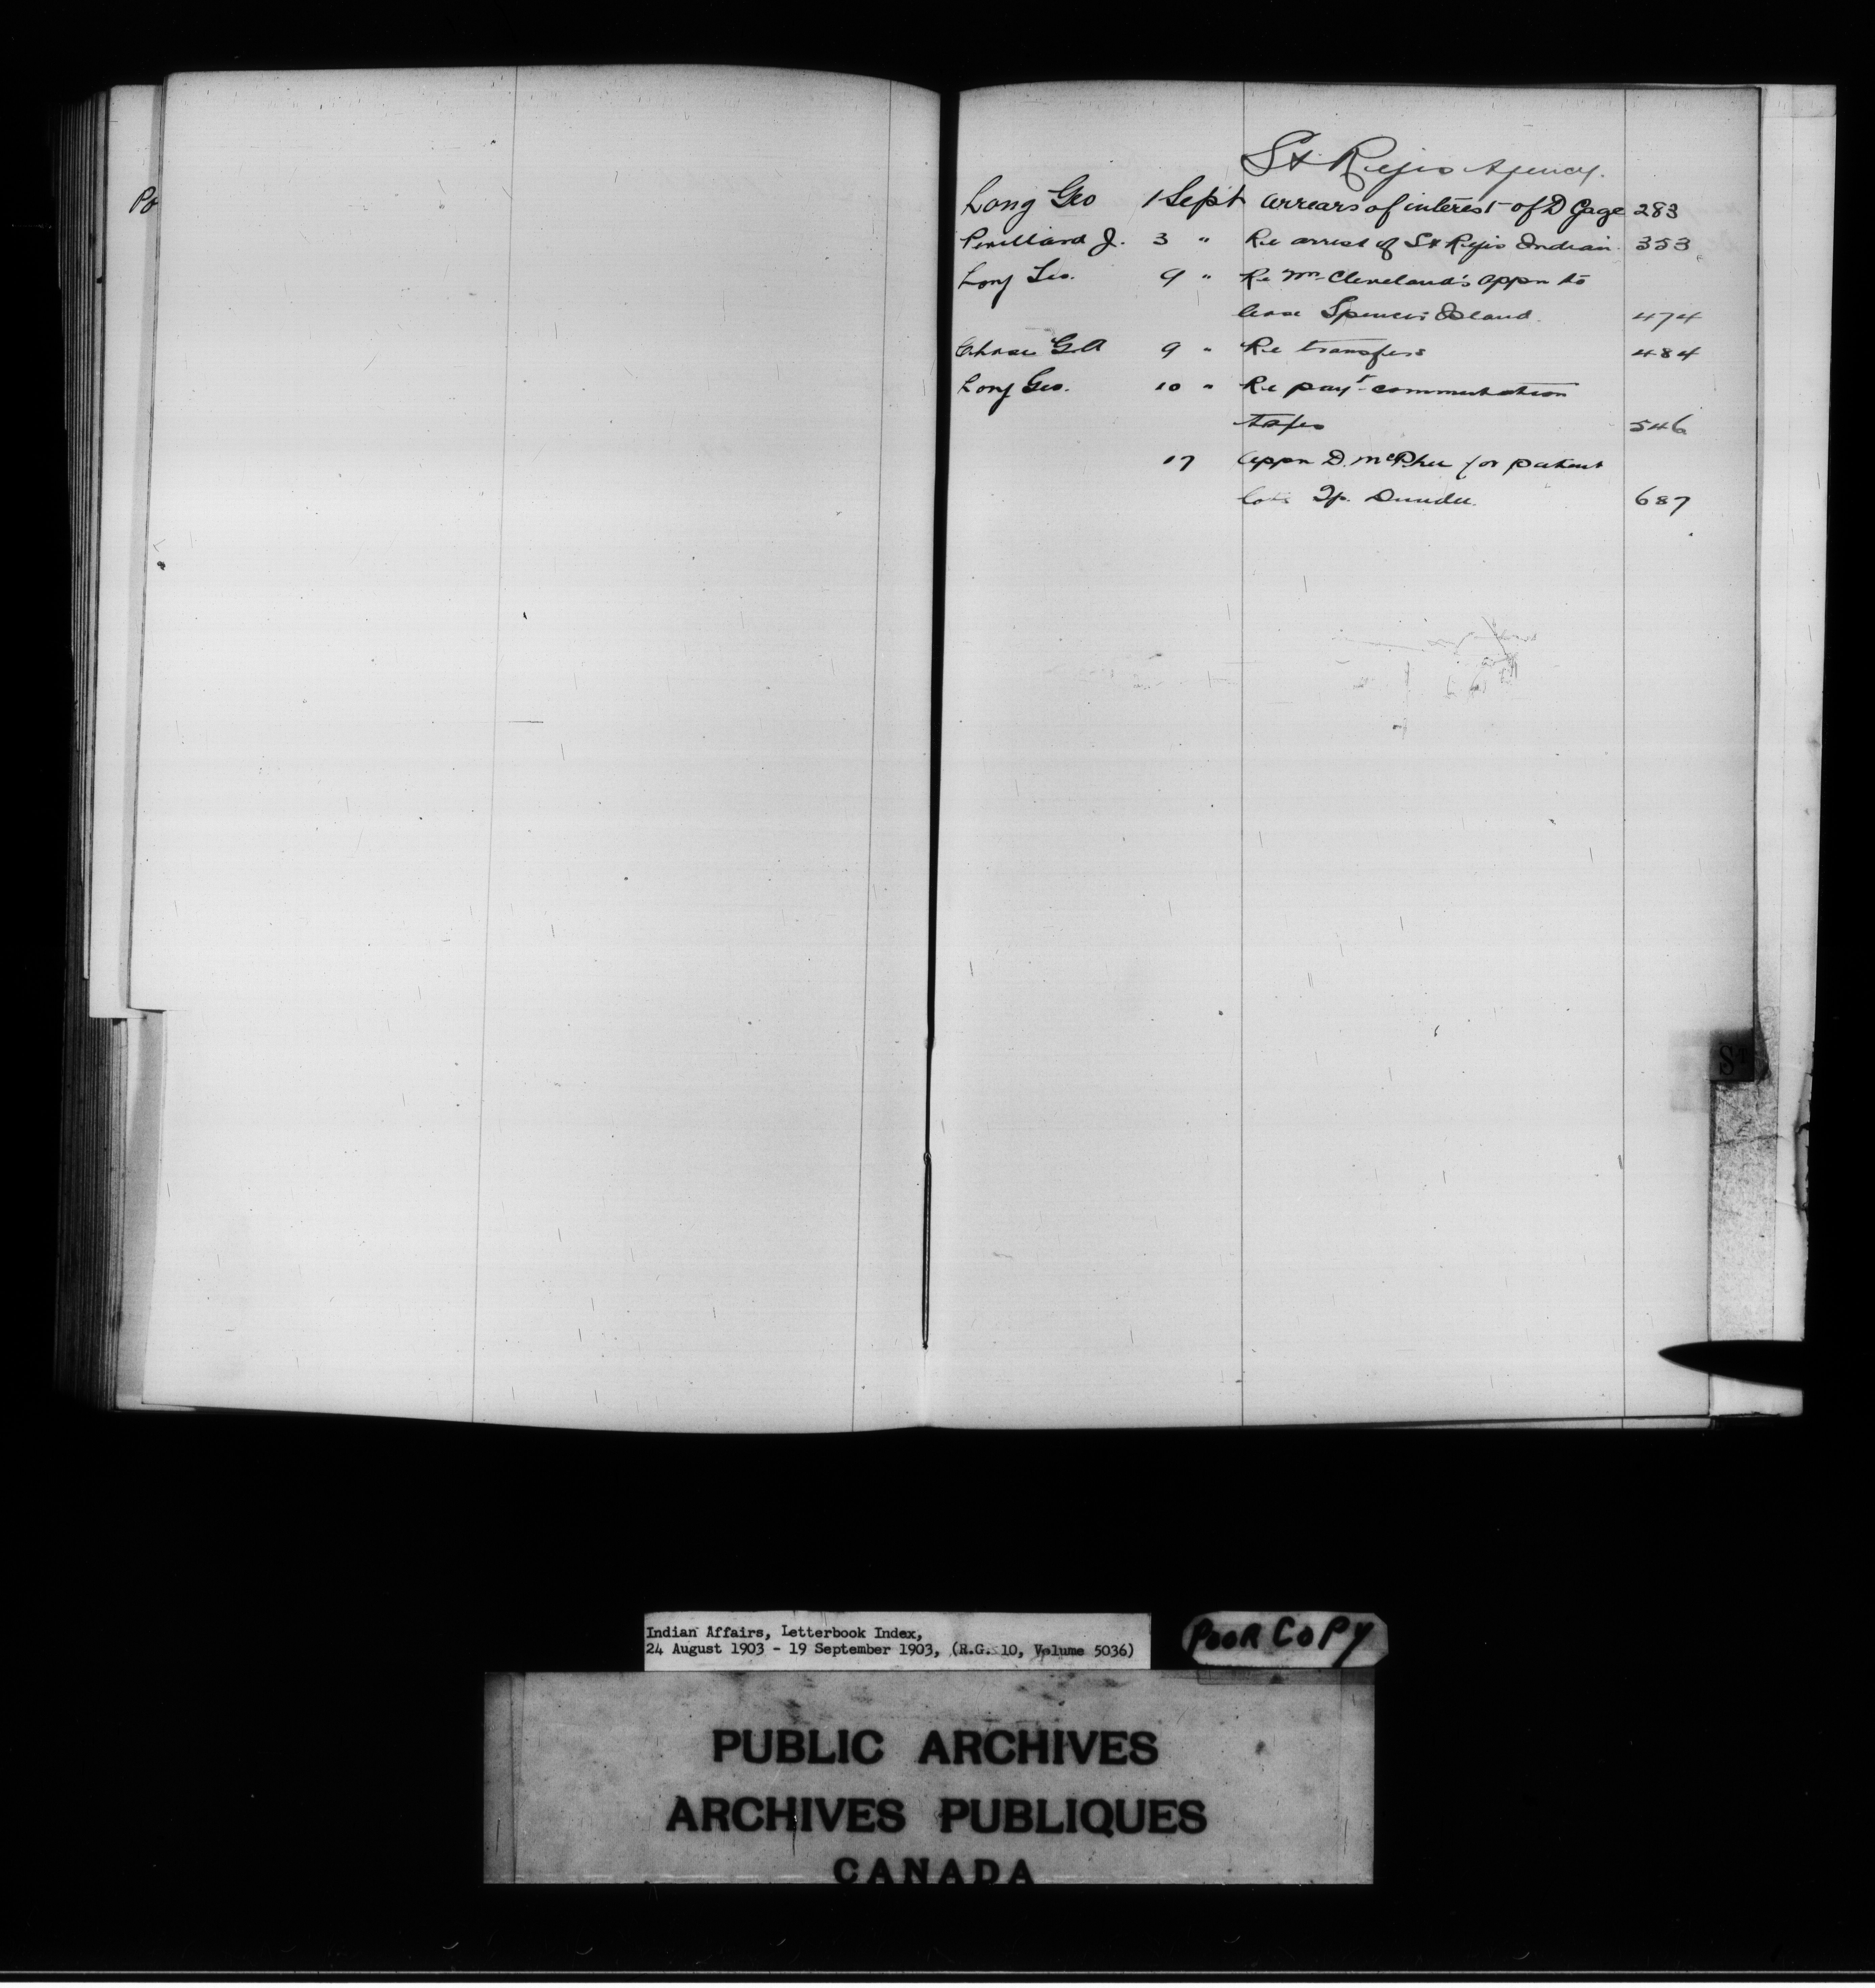 Po
St Regis Agency.
Long Geo 1 Sept arrears of interest of D Gage 283
J. 3 " Re arrest of St Regis Indian 353
Long Geo. 9 " Re Mr Cleveland's appn to
lease Spencer Island. 474
Chase G.A 9 " Re transfers 484
Long Geo. 10 " Re payt commutation
546
17 appn D. McPhee for patent
Tp. Dundee. 687
St
Indian Affairs, Letterbook Index,
24 August 1903 - 19 September 1903, (R.G. 10, Volume 5036)
POOR COPY
PUBLIC ARCHIVES
ARCHIVES PUBLIQUES
CANADA